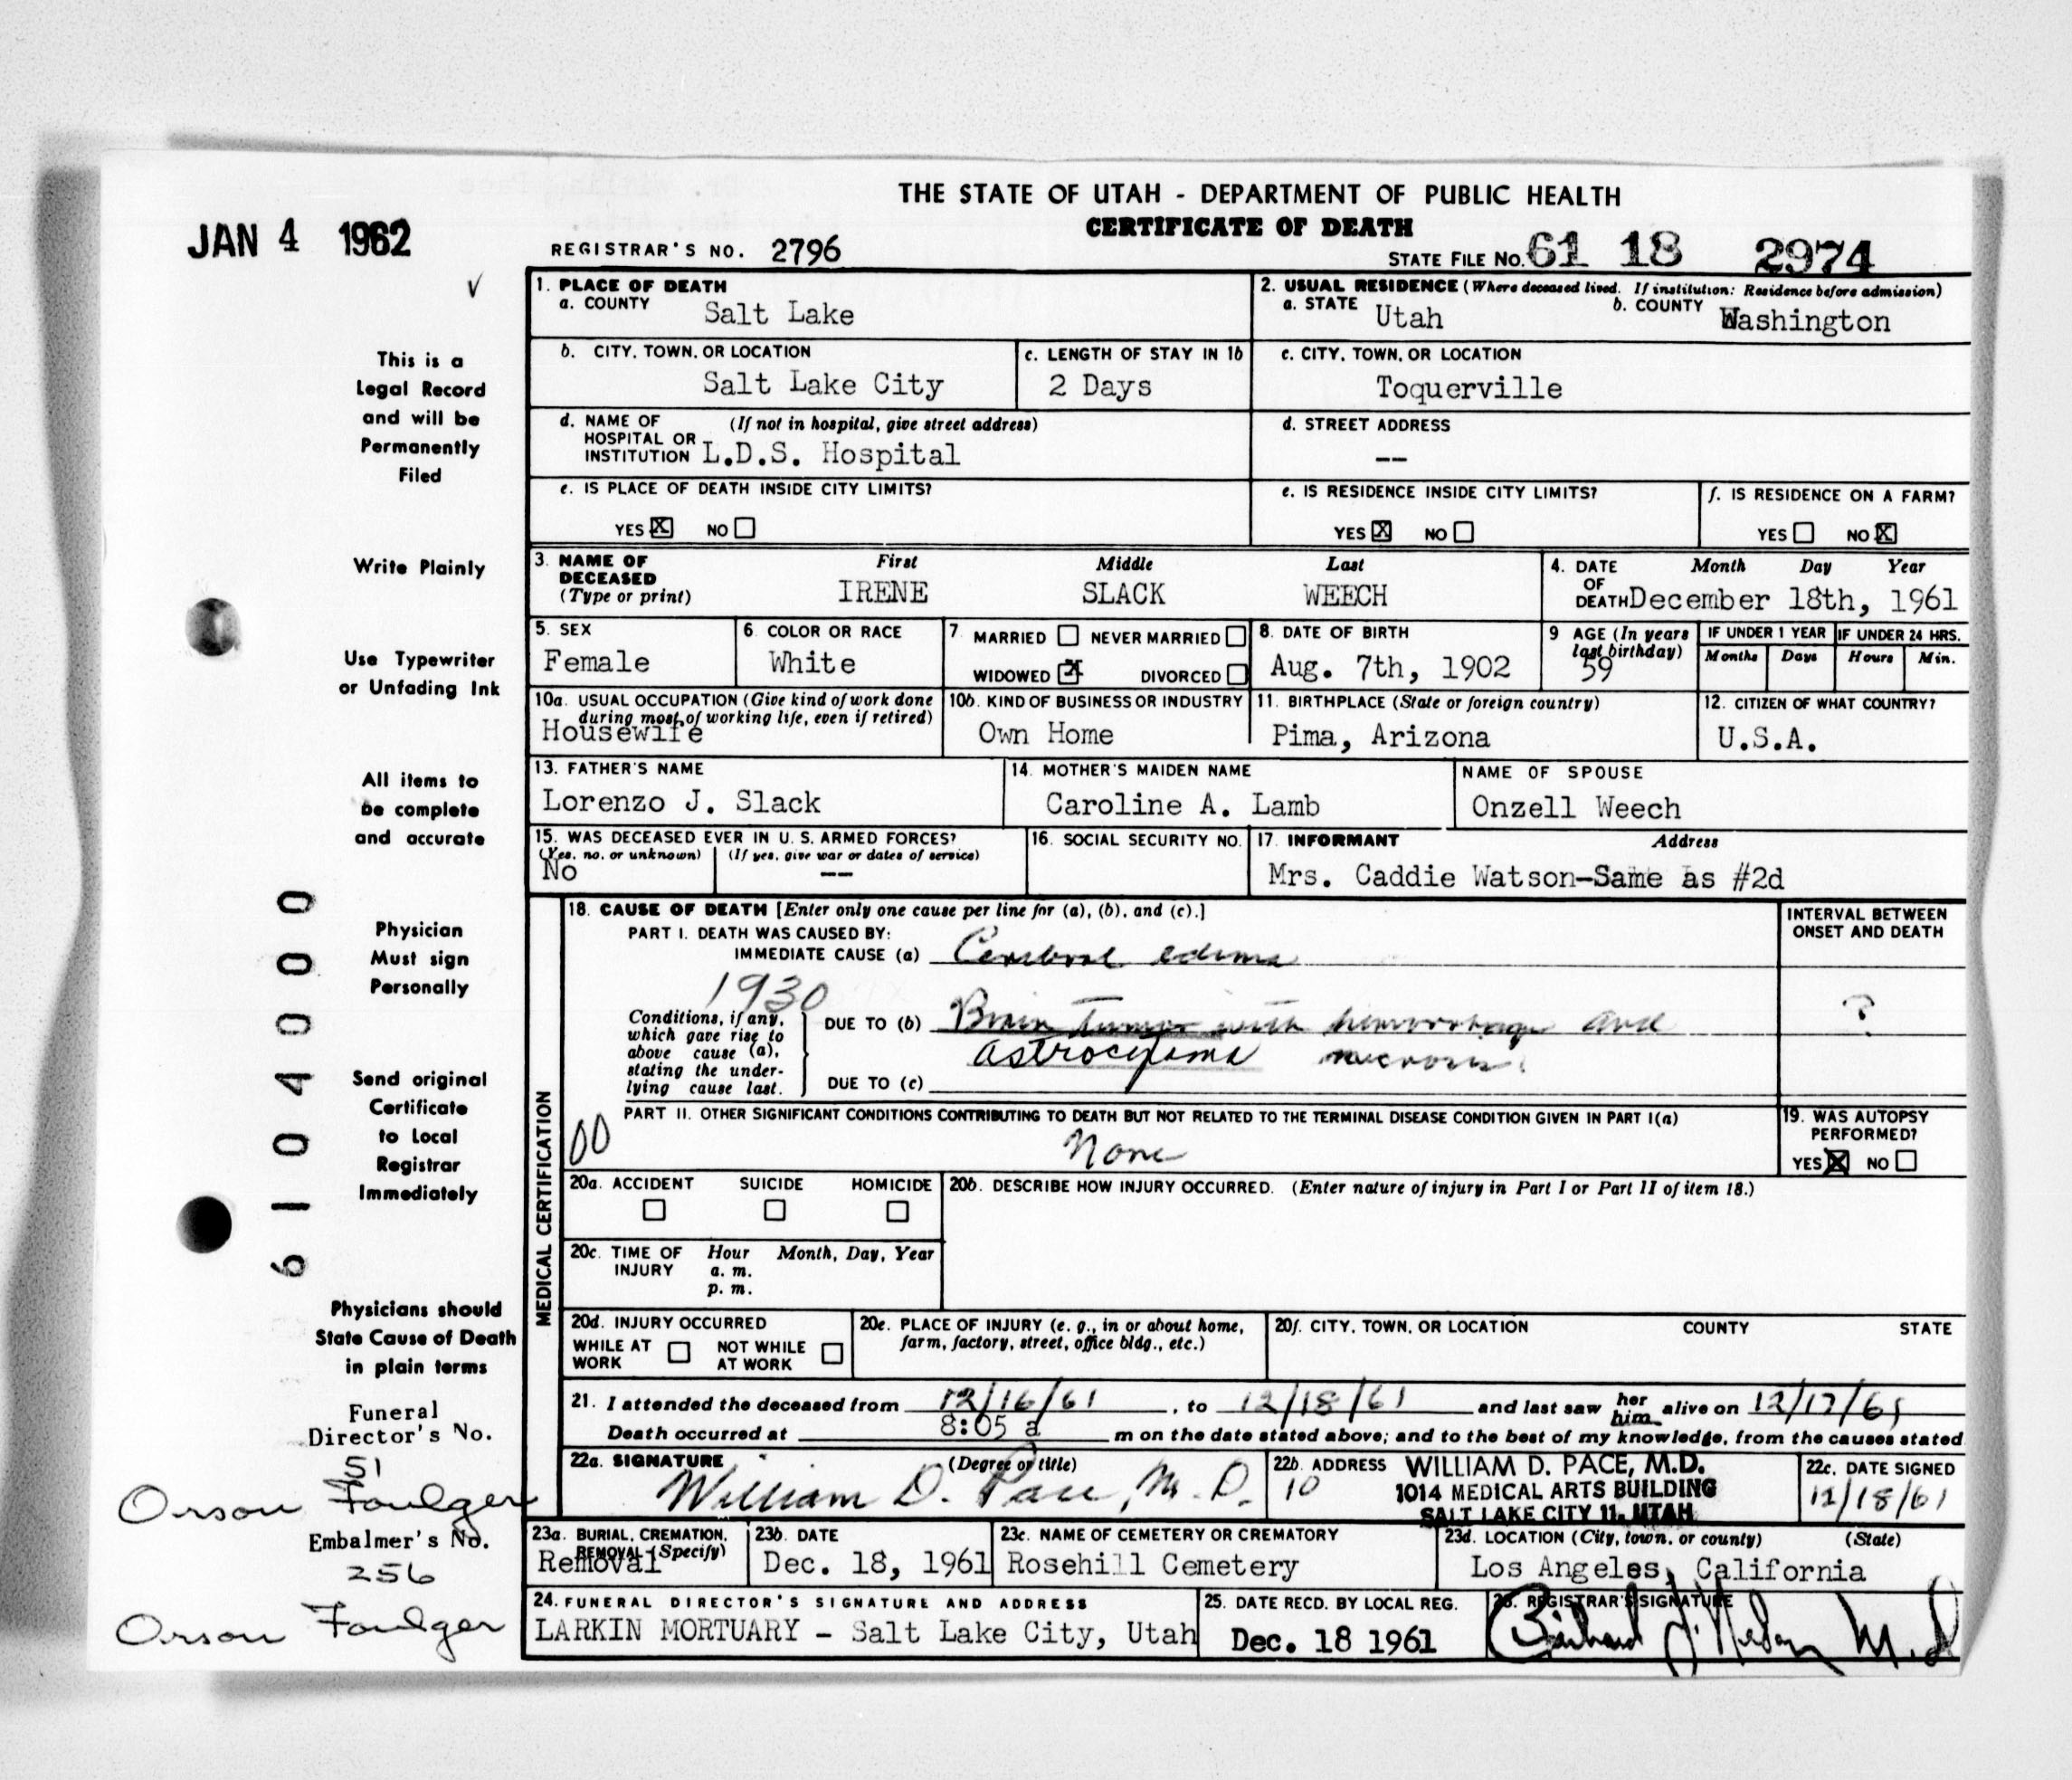 THE STATE OF UTAH - DEPARTMENT OF PUBLIC HEALTH
CERTIFICATE OF DEATH
JAN 4 1962
REGISTRAR'S NO. 2796
STATE FILE NO. 61 18 2974
This is a
Legal Record
and will be
Permanently
Filed
Write Plainly
Use Typewriter
or Unfading Ink
All items to
be complete
and accurate
Physician
Must sign
Personally
Send original
Certificate
to Local
Registrar
Immediately
Physicians should
State Cause of Death
in plain terms
Funeral
Director's No.
51
Orson Foulger
Embalmer's No.
256
Orson Foulger
6104000
1. PLACE OF DEATH
a. COUNTY Salt Lake
2. USUAL RESIDENCE (Where deceased lived. If institution: Residence before admission)
a. STATE Utah b. COUNTY Washington
b. CITY, TOWN, OR LOCATION
Salt Lake City
c. LENGTH OF STAY IN 1b
2 Days
c. CITY, TOWN, OR LOCATION
Toquerville
d. NAME OF (If not in hospital, give street address)
HOSPITAL OR
INSTITUTION L.D.S. Hospital
d. STREET ADDRESS
--
e. IS PLACE OF DEATH INSIDE CITY LIMITS?
YES X NO
e. IS RESIDENCE INSIDE CITY LIMITS?
YES X NO
f. IS RESIDENCE ON A FARM?
YES NO X
3. NAME OF First Middle Last
DECEASED
(Type or print) IRENE SLACK WEECH
4. DATE Month Day Year
OF
DEATH December 18th, 1961
5. SEX
Female
6. COLOR OR RACE
White
7. MARRIED NEVER MARRIED
WIDOWED X DIVORCED
8. DATE OF BIRTH
Aug. 7th, 1902
9 AGE (In years
last birthday)
59
IF UNDER 1 YEAR IF UNDER 24 HRS.
Months Days Hours Min.
10a. USUAL OCCUPATION (Give kind of work done
during most of working life, even if retired)
Housewife
10b. KIND OF BUSINESS OR INDUSTRY
Own Home
11. BIRTHPLACE (State or foreign country)
Pima, Arizona
12. CITIZEN OF WHAT COUNTRY?
U.S.A.
13. FATHER'S NAME
Lorenzo J. Slack
14. MOTHER'S MAIDEN NAME
Caroline A. Lamb
NAME OF SPOUSE
Onzell Weech
15. WAS DECEASED EVER IN U. S. ARMED FORCES?
(Yes, no, or unknown) (If yes, give war or dates of service)
No --
16. SOCIAL SECURITY NO.
17. INFORMANT Address
Mrs. Caddie Watson-Same as #2d
MEDICAL CERTIFICATION
18. CAUSE OF DEATH [Enter only one cause per line for (a), (b), and (c).]
PART I. DEATH WAS CAUSED BY:
IMMEDIATE CAUSE (a) Cerebral edema
INTERVAL BETWEEN
ONSET AND DEATH
1930
Conditions, if any,
which gave rise to
above cause (a),
stating the under-
lying cause last.
DUE TO (b) Brain tumor with hemorrhage and
?
astrocytoma necrosis.
DUE TO (c)
PART II. OTHER SIGNIFICANT CONDITIONS CONTRIBUTING TO DEATH BUT NOT RELATED TO THE TERMINAL DISEASE CONDITION GIVEN IN PART I(a)
00 None
19. WAS AUTOPSY
PERFORMED?
YES X NO
20a. ACCIDENT SUICIDE HOMICIDE
20b. DESCRIBE HOW INJURY OCCURRED. (Enter nature of injury in Part I or Part II of item 18.)
20c. TIME OF Hour Month, Day, Year
INJURY a. m.
p. m.
20d. INJURY OCCURRED
WHILE AT NOT WHILE
WORK AT WORK
20e. PLACE OF INJURY (e. g., in or about home,
farm, factory, street, office bldg., etc.)
20f. CITY, TOWN, OR LOCATION COUNTY STATE
21. I attended the deceased from 12/16/61, to 12/18/61 and last saw her him alive on 12/17/61
Death occurred at 8:05 a m on the date stated above; and to the best of my knowledge, from the causes stated
22a. SIGNATURE (Degree or title)
William D. Pace, M.D.
22b. ADDRESS WILLIAM D. PACE, M.D.
10 1014 MEDICAL ARTS BUILDING
SALT LAKE CITY 11, UTAH
22c. DATE SIGNED
12/18/61
23a. BURIAL, CREMATION,
REMOVAL (Specify)
Removal
23b. DATE
Dec. 18, 1961
23c. NAME OF CEMETERY OR CREMATORY
Rosehill Cemetery
23d. LOCATION (City, town, or county) (State)
Los Angeles, California
24. FUNERAL DIRECTOR'S SIGNATURE AND ADDRESS
LARKIN MORTUARY - Salt Lake City, Utah
25. DATE RECD. BY LOCAL REG.
Dec. 18 1961
26. REGISTRAR'S SIGNATURE